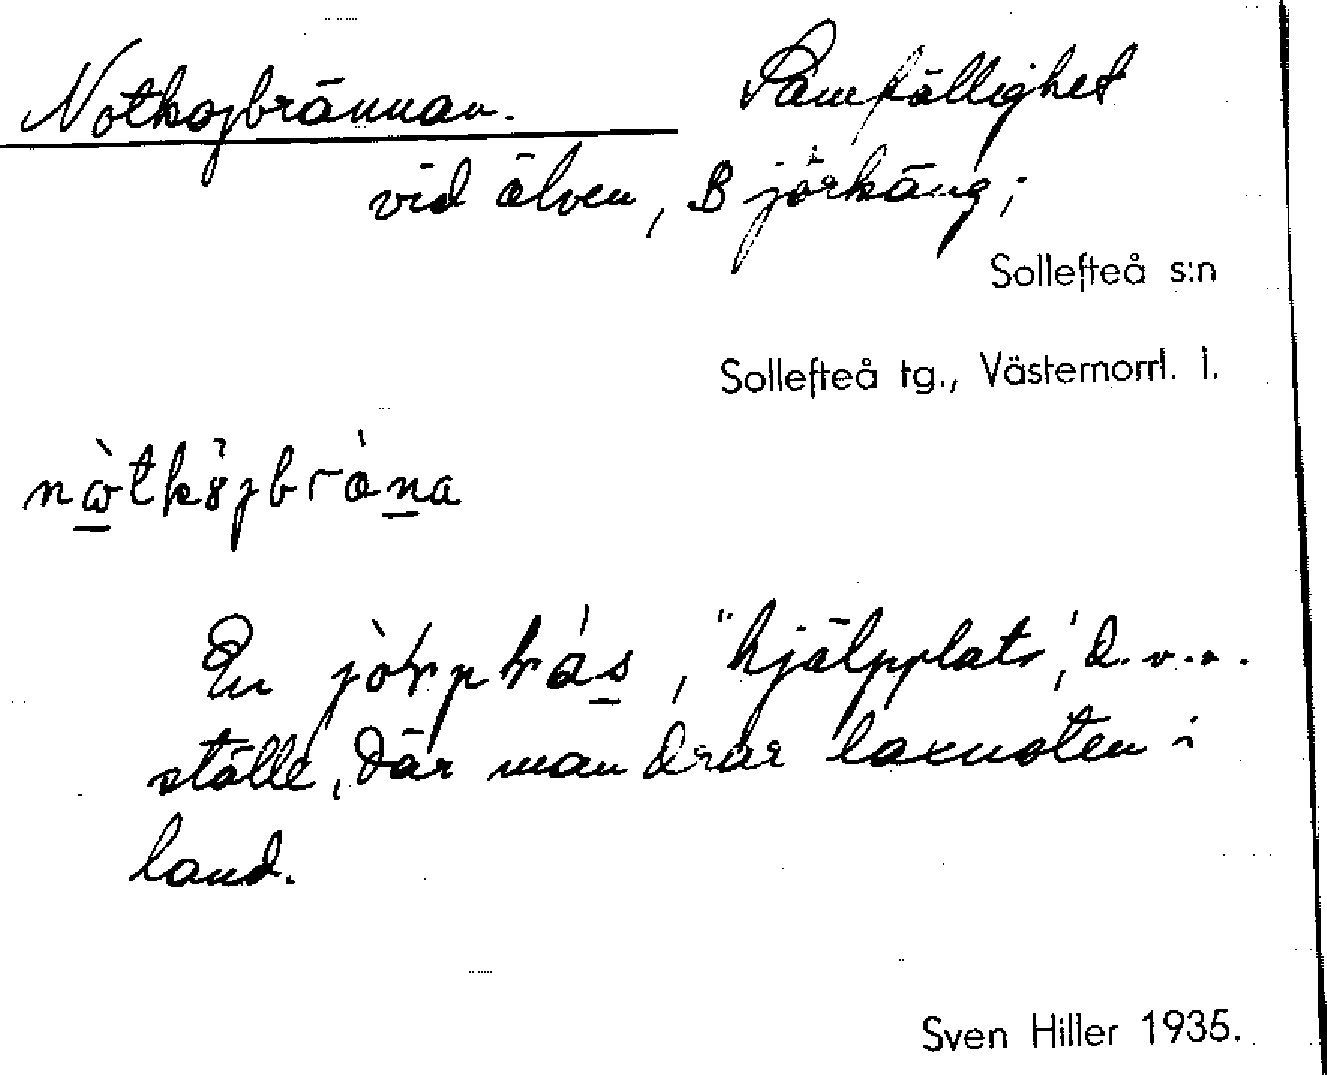 Notkojbrännan. Samfällighet
vid älven, Björkäng;
Sollefteå s:n
Sollefteå tg., Västernorrl. l.
En "hjälpplats", d.v.s.
ställe, där man drar laxnoten i
land.
Sven Hiller 1935.